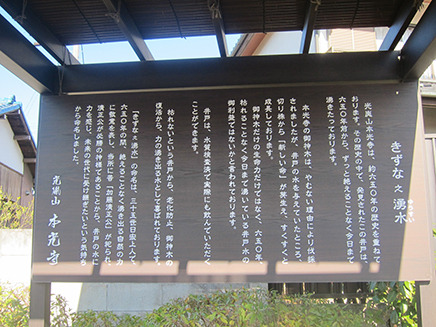 きずな之湧水
ゆうすい
光眞山本光寺は、約六五〇年の歴史を重ねて
おります。その歴史の中で、発見されたこの井戸は
六五〇年前から、ずっと絶えることなく今日まで
湧きたっております。
本光寺の御神木は、やむない理由により伐採
されましたが、井戸の水を与えていたところ、
切り株から「新しい命」が芽生え、すくすくと
成長しております。
御神木だけの生命力だけではなく、六五〇年、
枯れることなく今日まで湧いている井戸水の
御利益ではないかと言われております。
井戸は、水質検査済で実際にも飲んでいただく
ことができます。
枯れないという井戸から、老化防止、御神木の
復活から、力の湧き出る水として喜ばれております。
「きずな之湧水」の命名は、三十五世日宏上人で、
六五〇年の間、絶えることなく湧き出る自然の力
に感覚を表し、当所に寺「加藤清正公」が祀られ、
清正公が必勝の神様であることから、井戸の水に
力を感じ、未来の世代に受け継ぎたいという気持ち
から命名しました。
光陽山 本光寺